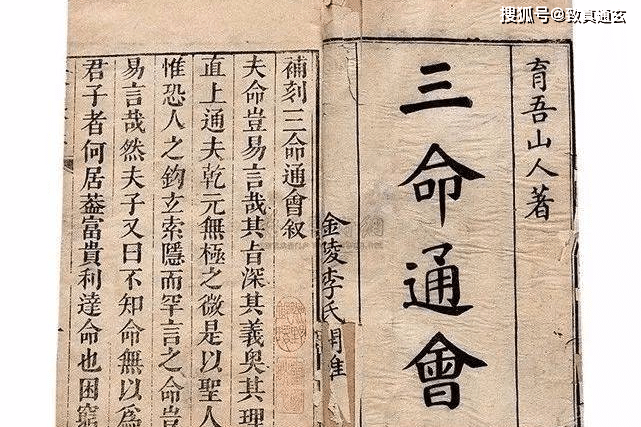 搜狐号@致真通玄
育吾山人著
三命通會
金陵李氏
補刻三命通會叙
夫命豈易言哉其旨深其義奥其理
直上通夫乾元無極之微是以聖人
惟恐人之鉤玄索隱而罕言之命豈
易言哉然夫子又曰不知命無以爲
君子者何居葢富貴利達命也困窮